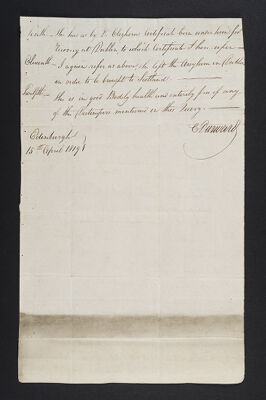 Tenth – She has as by D. Cleghorn certificate been under him for
Recovery at Dublin to which Certificate I here refer –
Eleventh – I again refer as above, she left the Asylum in Dublin
in order to be brought to Scotland –
Twelfth – She is in good Bodily health and entirely free of any
of the Distempers mentioned in this Query –
Edinburgh
15th April 1819